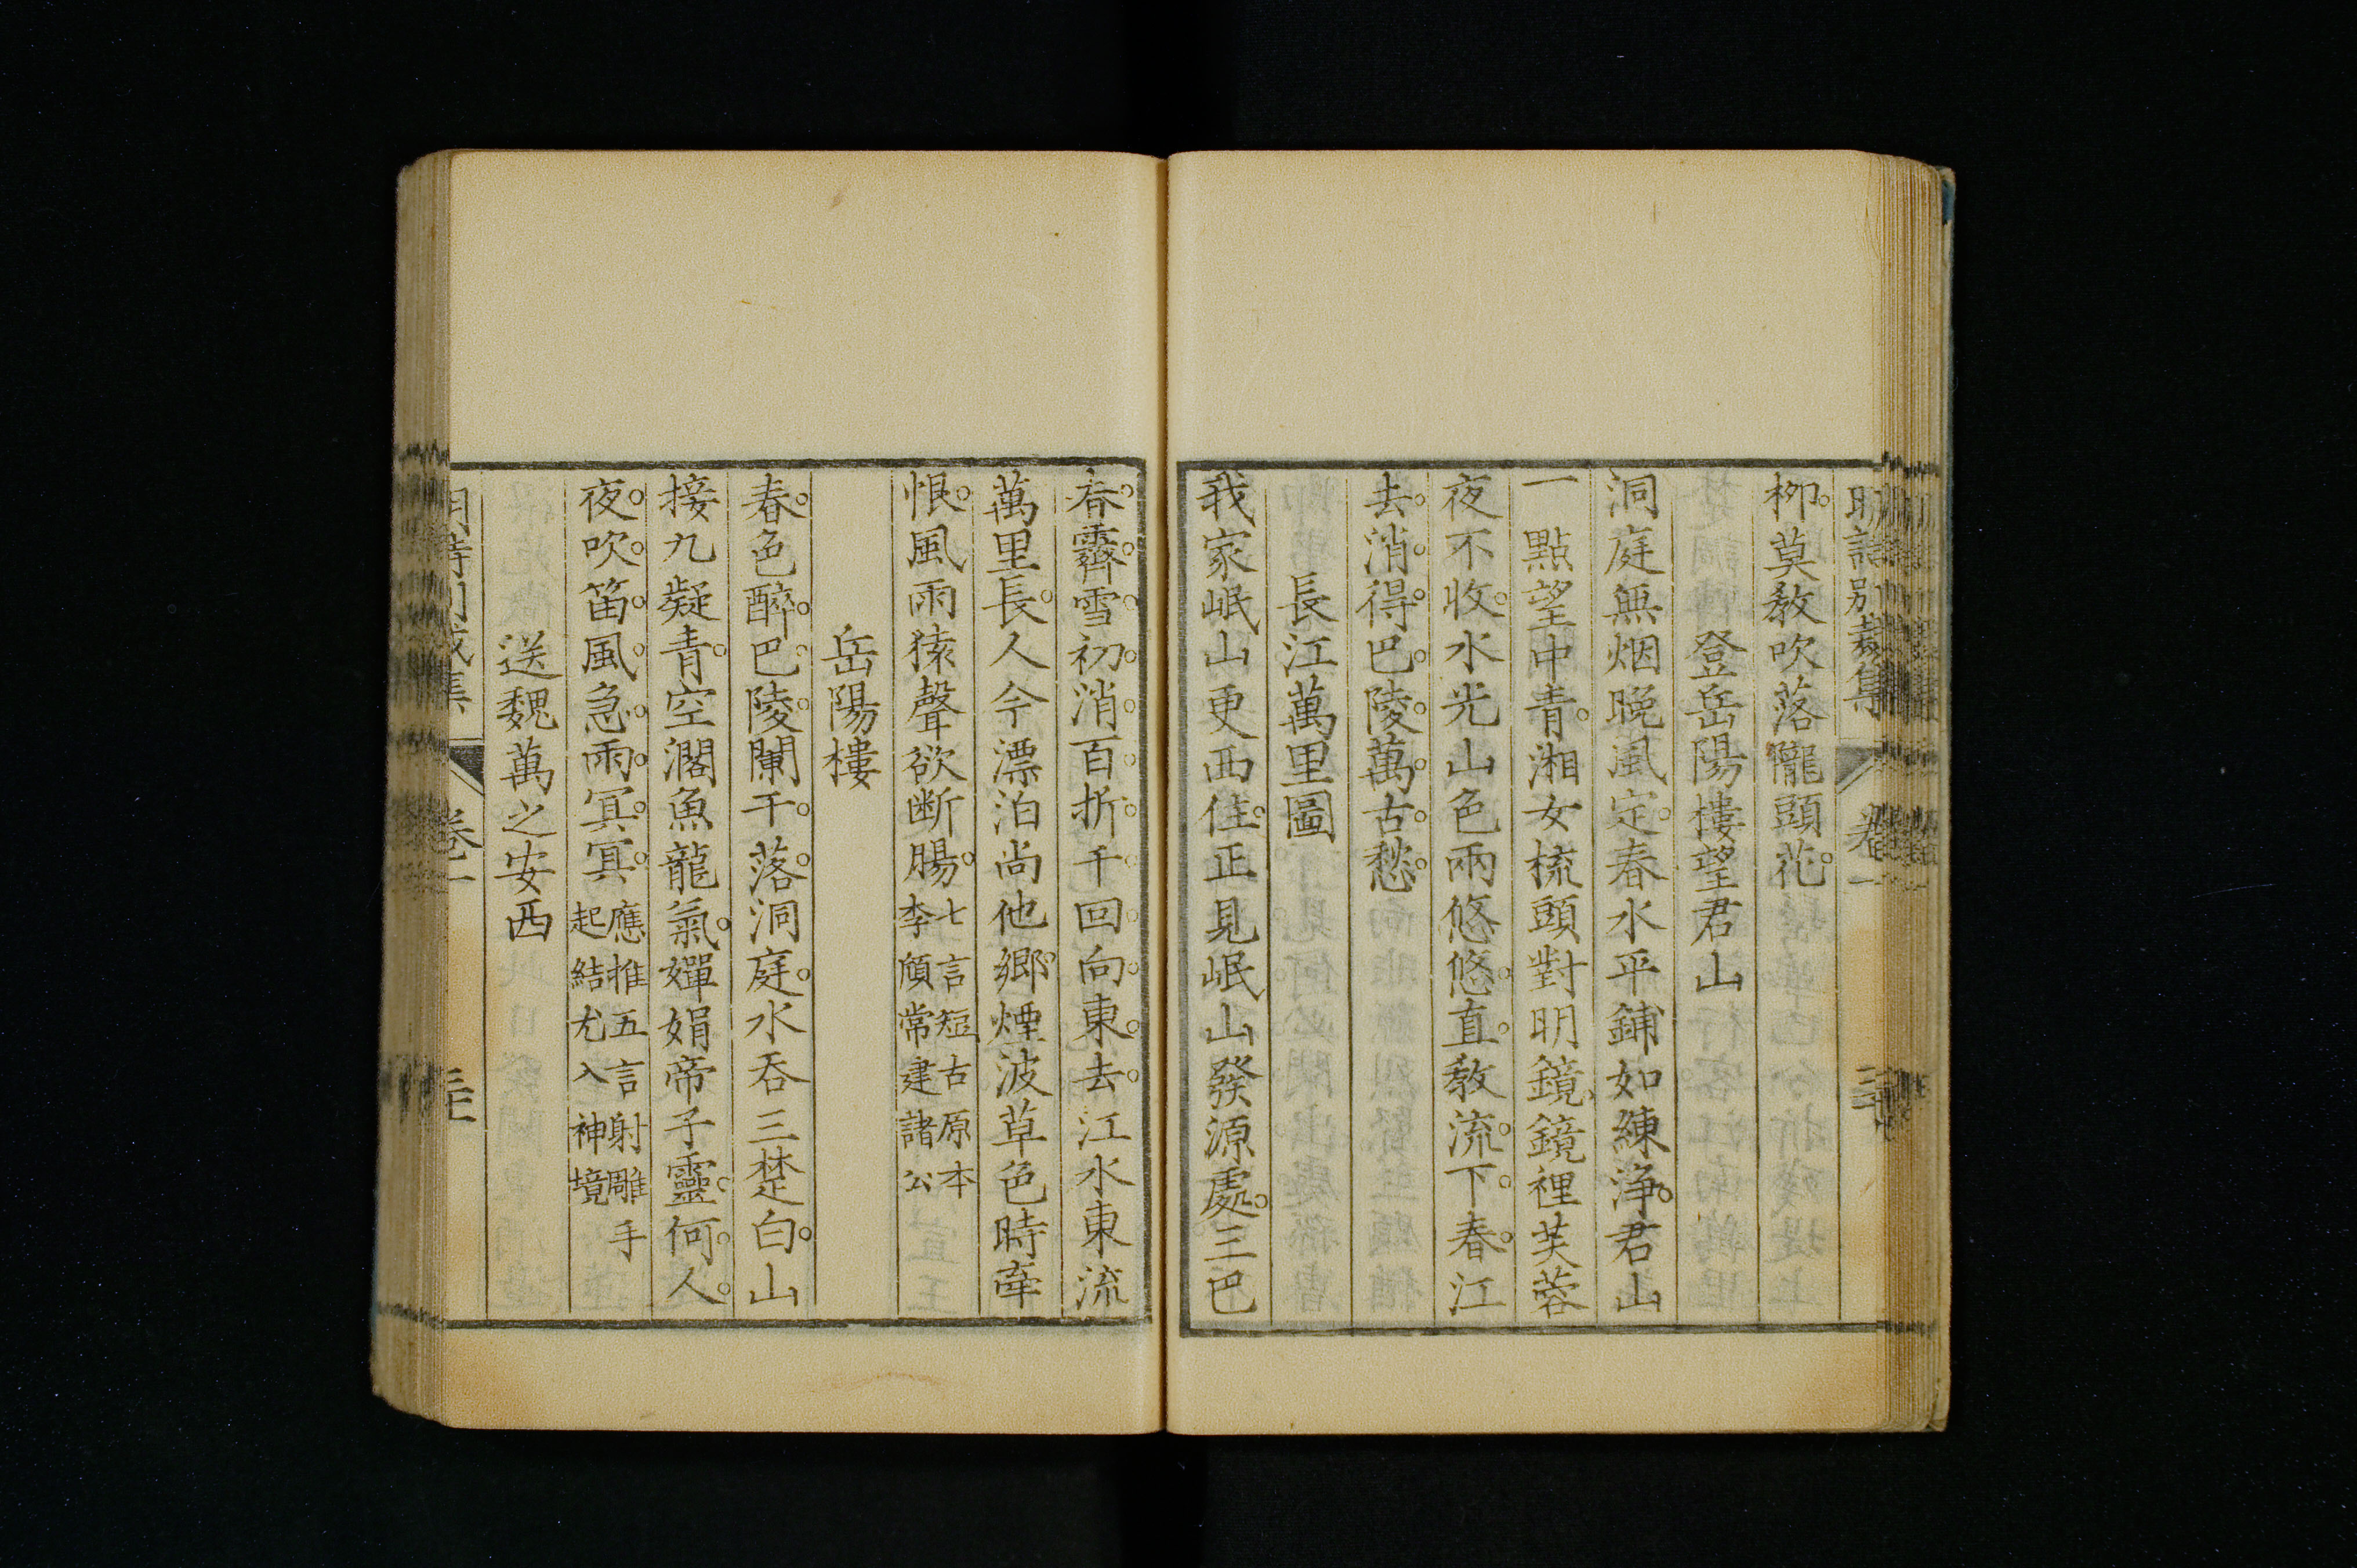 明詩別裁集 卷一
柳莫教吹落隴頭花
登岳陽樓望君山
洞庭無烟晚風定春水平鋪如練淨君山
一點望中青湘女梳頭對明鏡鏡裡芙蓉
夜不收水光山色兩悠悠直教流下春江
去消得巴陵萬古愁
長江萬里圖
我家岷山更西住正見岷山發源處三巴
春霽雪初消百折千回向東去江水東流
萬里長人今漂泊尚他鄉煙波草色時牽
恨風雨猿聲欲斷腸七言短古原本
李頎常建諸公
岳陽樓
春色醉巴陵闌干落洞庭水吞三楚白山
接九疑青空濶魚龍氣嬋娟帝子靈何人
夜吹笛風急雨冥冥應推五言射雕手
起結尤入神境
送魏萬之安西
卷一